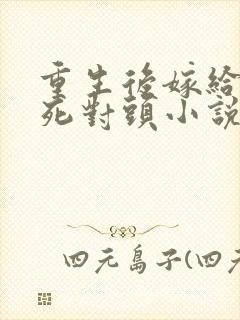 重生後嫁給
死對頭小說
四元島子(四元